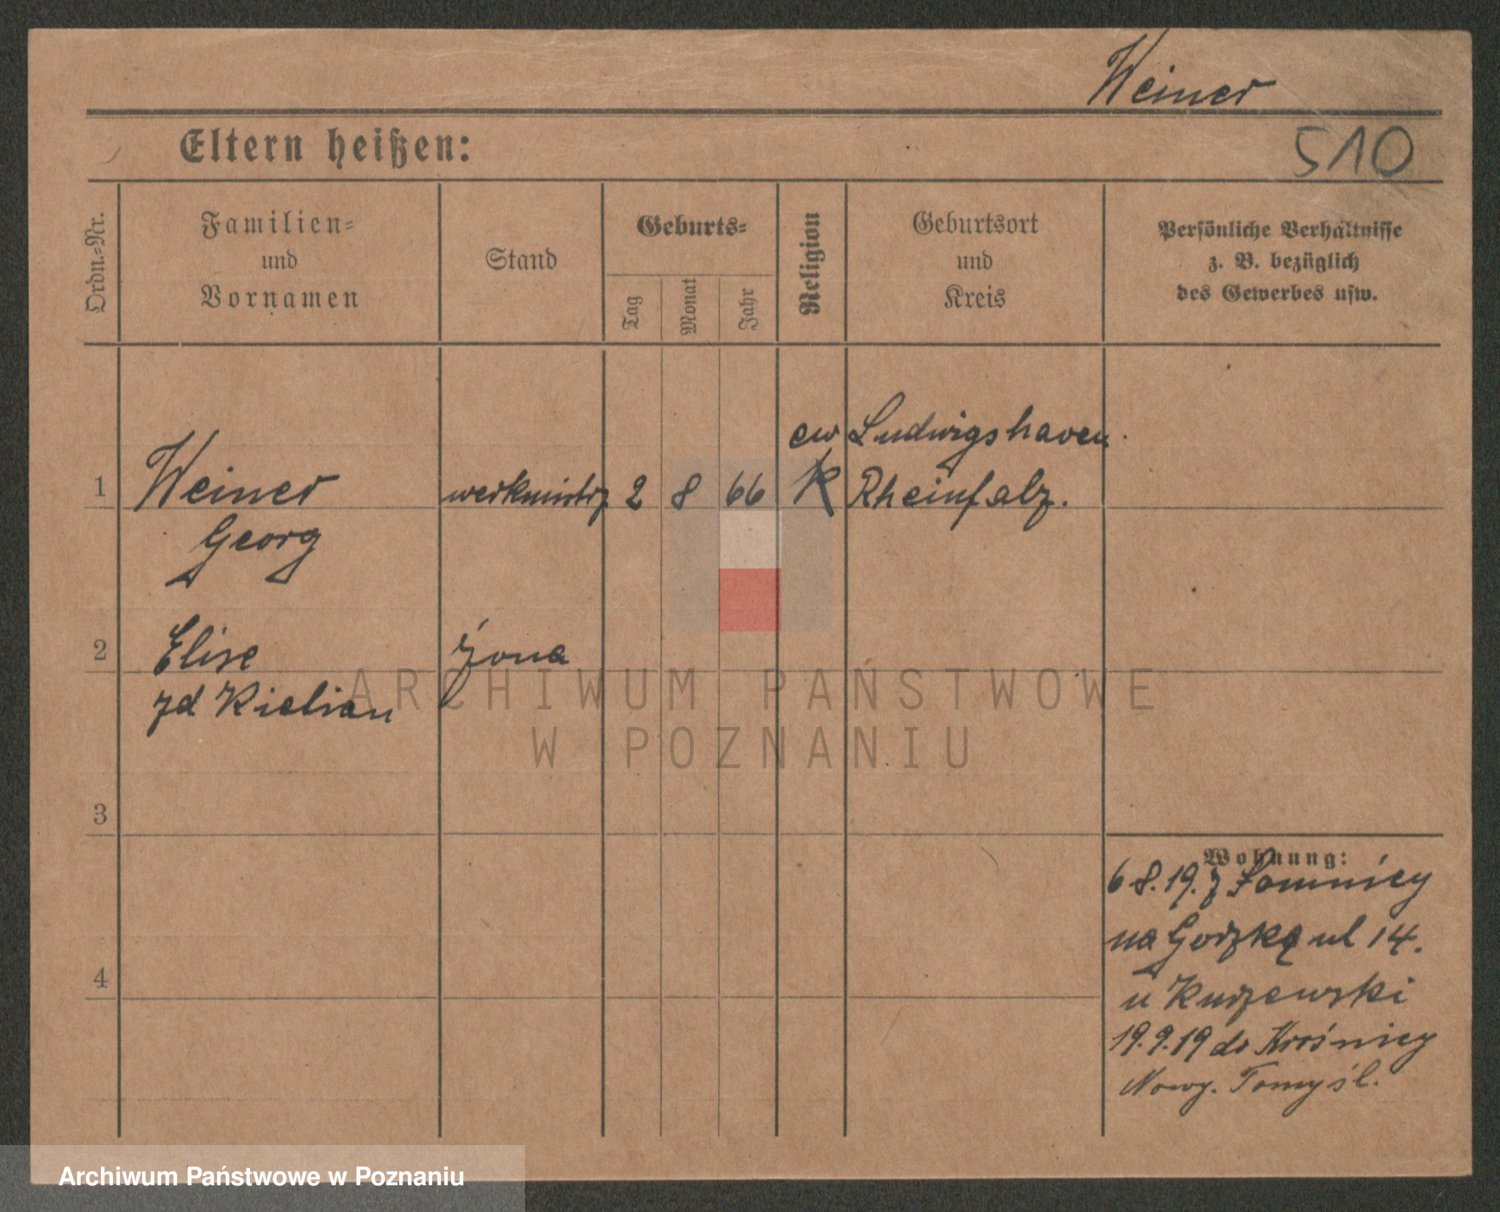 Weiner
510
Eltern heißen:
Ordn.=Nr.
Familien=
und
Vornamen
Stand
Geburts=
Tag
Monat
Jahr
Religion
Geburtsort
und
Kreis
Persönliche Verhältnisse
z. B. bezüglich
des Gewerbes usw.
ew Ludwigshaven
1 Weiner werkmistrz 2 8 66 K Rheinfalz.
Georg
2 Elise żona
zd Kielian
ARCHIWUM PAŃSTWOWE
W POZNANIU
3
Wohnung:
6 8.19. z Łomnicy
na Gorzką ul 14.
4
u Kurzewski
19.9.19 do Krośnicy
Nowy. Tomyśl.
Archiwum Państwowe w Poznaniu